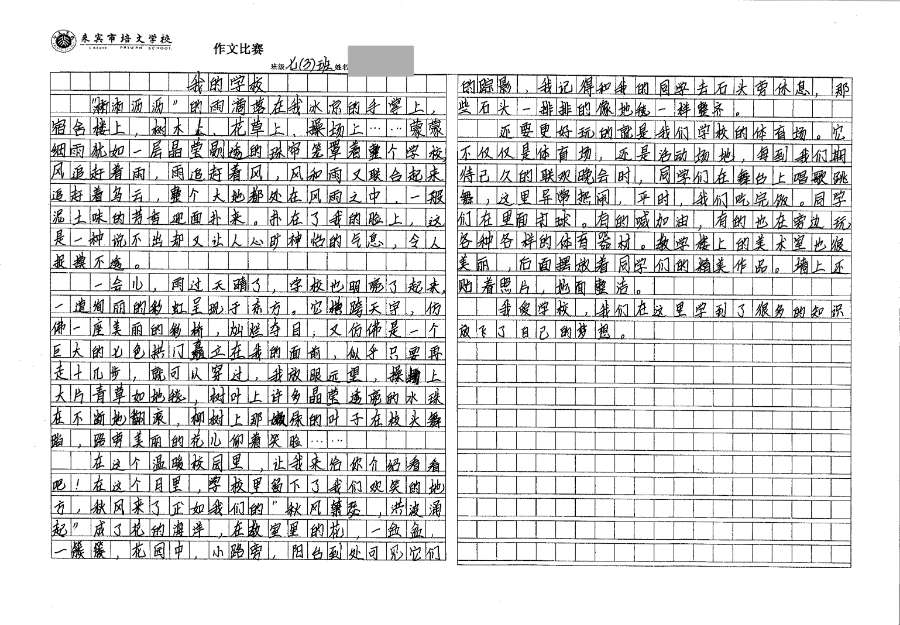 来宾市培文学校
LAIBIN PEIWEN SCHOOL
作文比赛
班级 七(3)班 姓名
我的学校
“淅淅沥沥”的雨滴落在我冰凉的手掌上，
宿舍楼上，树木上、花草上、操场上……蒙蒙
细雨犹如一层晶莹剔透的珠帘笼罩着整个学校，
风追赶着雨，雨追赶着风，风和雨又联合起来
追赶着乌云，整个大地都处在风雨之中，一般
泥土味的芳香迎面扑来。扑在了我的脸上，这
是一种说不出却又让人心旷神怡的气息，令人
捉摸不透。
一会儿，雨过天晴了，学校也明亮了起来，
一道绚丽的彩虹呈现于东方。它横跨天宇，仿
佛一座美丽的彩桥，灿烂夺目，又仿佛是一个
巨大的七色拱门矗立在我的面前，似乎只要再
走十几步，就可以穿过，我放眼远望，操场上
大片青草如地毯，树叶上许多晶莹透亮的水珠
在不断地翻滚，柳树上那嫩绿的叶子在枝头舞
蹈，路旁美丽的花儿仰着笑脸……
在这个温暖校园里，让我来给你介绍看看
吧！在这个月里，学校里留下了我们欢笑的地
方，秋风来了正如我们的“秋风萧瑟，洪波涌
起”成了花的海洋，在教室里的花，一盆盆，
一簇簇，花园中，小路旁，阳台到处可见它们
的踪影，我记得和我的同学去石头旁休息，那
些石头一排排的像地毯一样整齐。
还要更好玩的就是我们学校的体育场。它
不仅仅是体育场，还是活动场地，每到我们期
待已久的联欢晚会时，同学们在舞台上唱歌跳
舞，这里异常热闹，平时，我们吃完饭。同学
们在里面打球。有的喊加油，有的也在旁边玩
各种各样的体育器材。教学楼上的美术室也很
美丽，后面摆放着同学们的精美作品。墙上还
贴着照片，地面整洁。
我爱学校，我们在这里学到了很多的知识
放飞了自己的梦想。